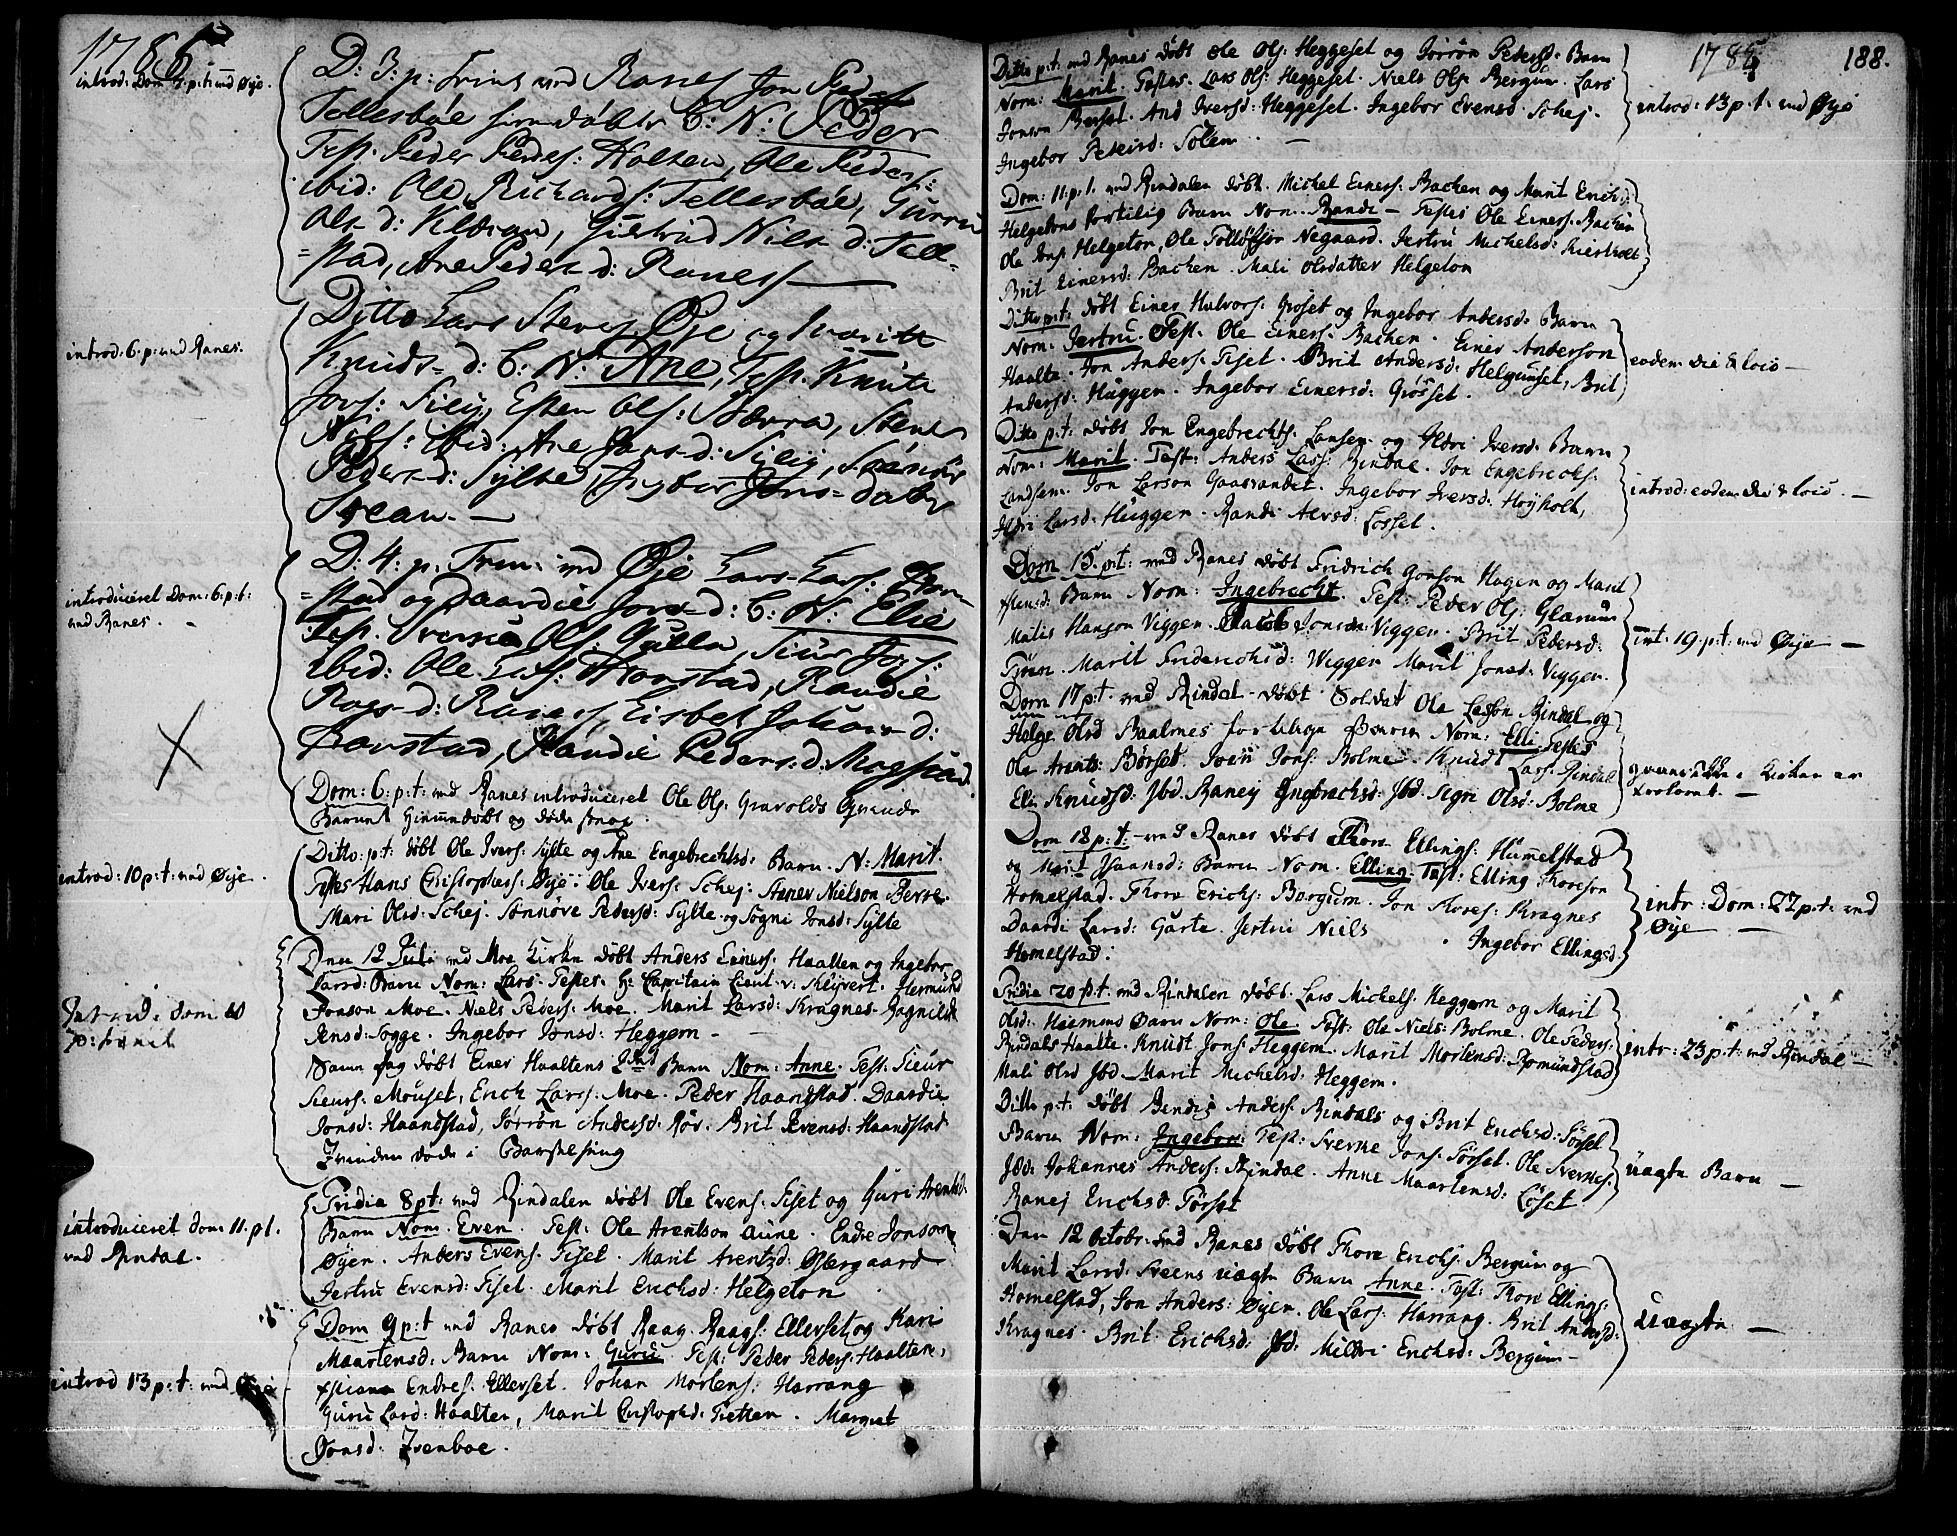 1785
introd: Dom 7. p: t: ved Øye.
D: 3: p: Trin: ved Ranes Jon
Tellesböe hem døbt b: N: Peder
Test. Peder Peders: Holten, Ole Peders:
ibid: Ole Richards: Tellesböe, Gurru
Ols-d: Kleran, Giertrud Nils-d: Tell-
=stad, Ane Peders-d: Ranes
introd: 6: p: ved Ranes.
Ditto Lars Stenes: Øye og Marit
Knuds-d: b: N: Ane, Test. Knut
Jons: Siliy, Esten Ols: Stærra, Sten
Nils: ibid: Ane Jons-d: Siliy,
Peders-d: Sylte, Ingebor Jons-datter
introduceret Dom: 6: p: t:
ved Ranes.
D: 4: p. Trin: ved Øye Lars Lars:
=stad og Daardie Jons-d: b: N: Elie
Test. Ols: Gulla, Siur Jons:
ibid: Ole Lars: Honstad, Randie
Rogs-d: Ranes, Lisbet Johans-d:
Honstad, Randie Peders-d: Mogstad
Dom: 6: p: t: ved Ranes introduceret Ole Ols: Gravolds Qvinde
Barnet hiemmedøbt og døde strax.
introd: 10 p: t: ved Øye.
Ditto: p: t: døbt Ole Ivers: Sylte og Ane Engebrechtsd: Barn. N: Marit.
Testes Hans Christophers: Øye. Ole Ivers: Schej. Stener Nielson Berre.
Mari Olsd: Schej. Sønnöve Pedersd: Sylte og Sogni Jonsd: Sylte
Den 12 Juli ved Moe Kirke døbt Anders Einers: Haalten og Ingebor
Larsd: Barn Nom: Lars. Testes. Hr Capitain Lieut. v: Klüvert. Hermund
Jonson Moe. Niels Peders: Moe. Marit Larsd: Kragnes. Ragnild
Jensd: Sogge. Ingebor Jonsd: Heggem
Introd: dom 10
p: trinit
Samme dag døbt Einer Haaltens Barn Nom: Anne. Test. Sieur
Sieurs: Mouset, Erich Lars: Moe. Peder Haandstad. Daardie
Jonsd: Haandstad, Jörrön Andersd: Rör. Brit Evensd: Haandstad
Qvinden døde i Barselseng
introduceret Dom 11. p t.
ved Rindal.
Fridie 8 pt: ved Rindalen døbt Ole Evens: Siset og Guri Arentsd
Barn Nom. Even. Test: Ole Arentson Aune. Endre Jonson
Øyen. Anders Evens. Siset. Marit Arentzd: Østergaard
Jertru Evensd: Siset. Marit Erichsd: Helgeton
introd 13 p: t: ved Øye
Dom 9 p: t ved Ranes døbt Raag Raags: Ellerset og Kari
Maartensd: Barn Nom: Guru. Test: Peder Peders: Haalten,
Endres: Ellerset. Johan Mortens: Harrang
Guru Larsd: Haalten, Marit Christophsd: Sletten. Margret
Jonsd: Trenboe.
1785
188.
Ditto p: t: ved Ranes døbt Ole Ols: Heggeset og Jörrön Pedersd: Barn
Nom: Marit. Testes. Lars Ols: Heggeset. Niels Ols: Bergum. Lars
Jonson Berset. And Iversd: Heggeset. Ingebor Evensd: Schej.
Ingebor Petersd: Solem
introd: 13 p: t: ved Øye
Dom: 11: p: t. ved Rindalen døbt. Michel Einers: Bachen og Marit Erichsd:
Helgetons fortilig Barn Nom. Randi - Testes Ole Einers: Bachen
Ole Jons: Helgeton, Ole Negaard. Jertru Michelsd: Kierholt
Brit Einersd: Bachen. Mali Olsdatter Helgeton
Ditto p: t: døbt Einer Halvors: Gröset og Ingebor Andersd: Barn
Nom: Jertru. Test. Ole Einers: Bachen. Einer Anderson
Haalte. Jon Anders: Siset. Brit Andersd: Helgumset, Brit
Andersd: Huggen. Ingebor Einersd: Gröset.
eodem die & loco
Ditto p: t: døbt Jon Engebrechts: Lansem og Ildri Iversd: Barn
Nom: Marit. Test: Anders Lars: Rindal. Jon Engebrechts:
Landsem. Jon Larson Gaasvandet. Ingebor Iversd: Höyholt,
Ildri Larsd: Huggen. Randi Losset.
introd: eodem die & loco.
Dom 15. p: t: ved Ranes døbt Fridrich Jonson Hagen og Marit
Barn Nom: Ingebrecht. Test: Peder Ols: Glærum
Matis Hanson Viggen. Jacob Jonson Viggen. Brit Pedersd:
Marit Friderichsd: Wiggen Marit Jonsd: Viggen.
int: 19. p: t: ved Øye
Dom 17 p: t ved Rindal døbt Soldat Ole Larson Rindal og
Helge Olsd Baalmes fortilige Barn Nom: Elli Testes
Ole Arents: Börset. Join Jons: Bolme. Knudt Lars: Rindal
Eli Knudsd: Ibd. Ranej Engebrechsd: Ibd. Sigri Olsd: Bolme
qvan: ikke i Kirken er
Dom 18 p: t: ved Ranes døbt Thore Ellings: Hummelstad
og Marit Isaacsd: Barn Nom. Elling. Test: Elling Thoreson
Homelstad. Thore Erichs: Borgum. Jon Thores: Kragnes
Daardi Larsd: Garte. Jertru Niels Ingebor Ellingsd:
Homelstad:
intr: Dom: 22 p: t: ved
Øye
Fridie 20 p: t: ved Rindalen døbt. Lars Michels: Heggem og Marit
Olsd: Haemund Barn Nom: Ole. Test: Ole Niels: Bolme. Ole Peders:
Rindals Haalte. Knudt Jons: Heggem. Marit Mortensd: Romundstad
Mali Olsd Ibd. Marit Michelsd: Heggem.
intr: 23 p: t: ved Rindal
Ditto p: t: døbt Bendix Anders: Rindals og Brit Erichsd: Törset
Barn Nom: Ingebor. Test: Sverke Jons: Törset. Ole Sverkes:
Ibd: Johannes Anders: Rindal. Anne Maartensd: Löset.
Ranej Erichsd: Törset
uægte Barn
Den 12 Octobr ved Ranes døbt Thore Erichs: Bergum og
Marit Larsd: Sveens uægte Barn Anne. Test: Thore Ellings:
Homelstad, Jon Anders: Øyen. Ole Lars: Harrang. Brit Andersd:
Kragnes. Brit: Erichsd: Ibd: Mildri Erichsd: Bergum
uægte